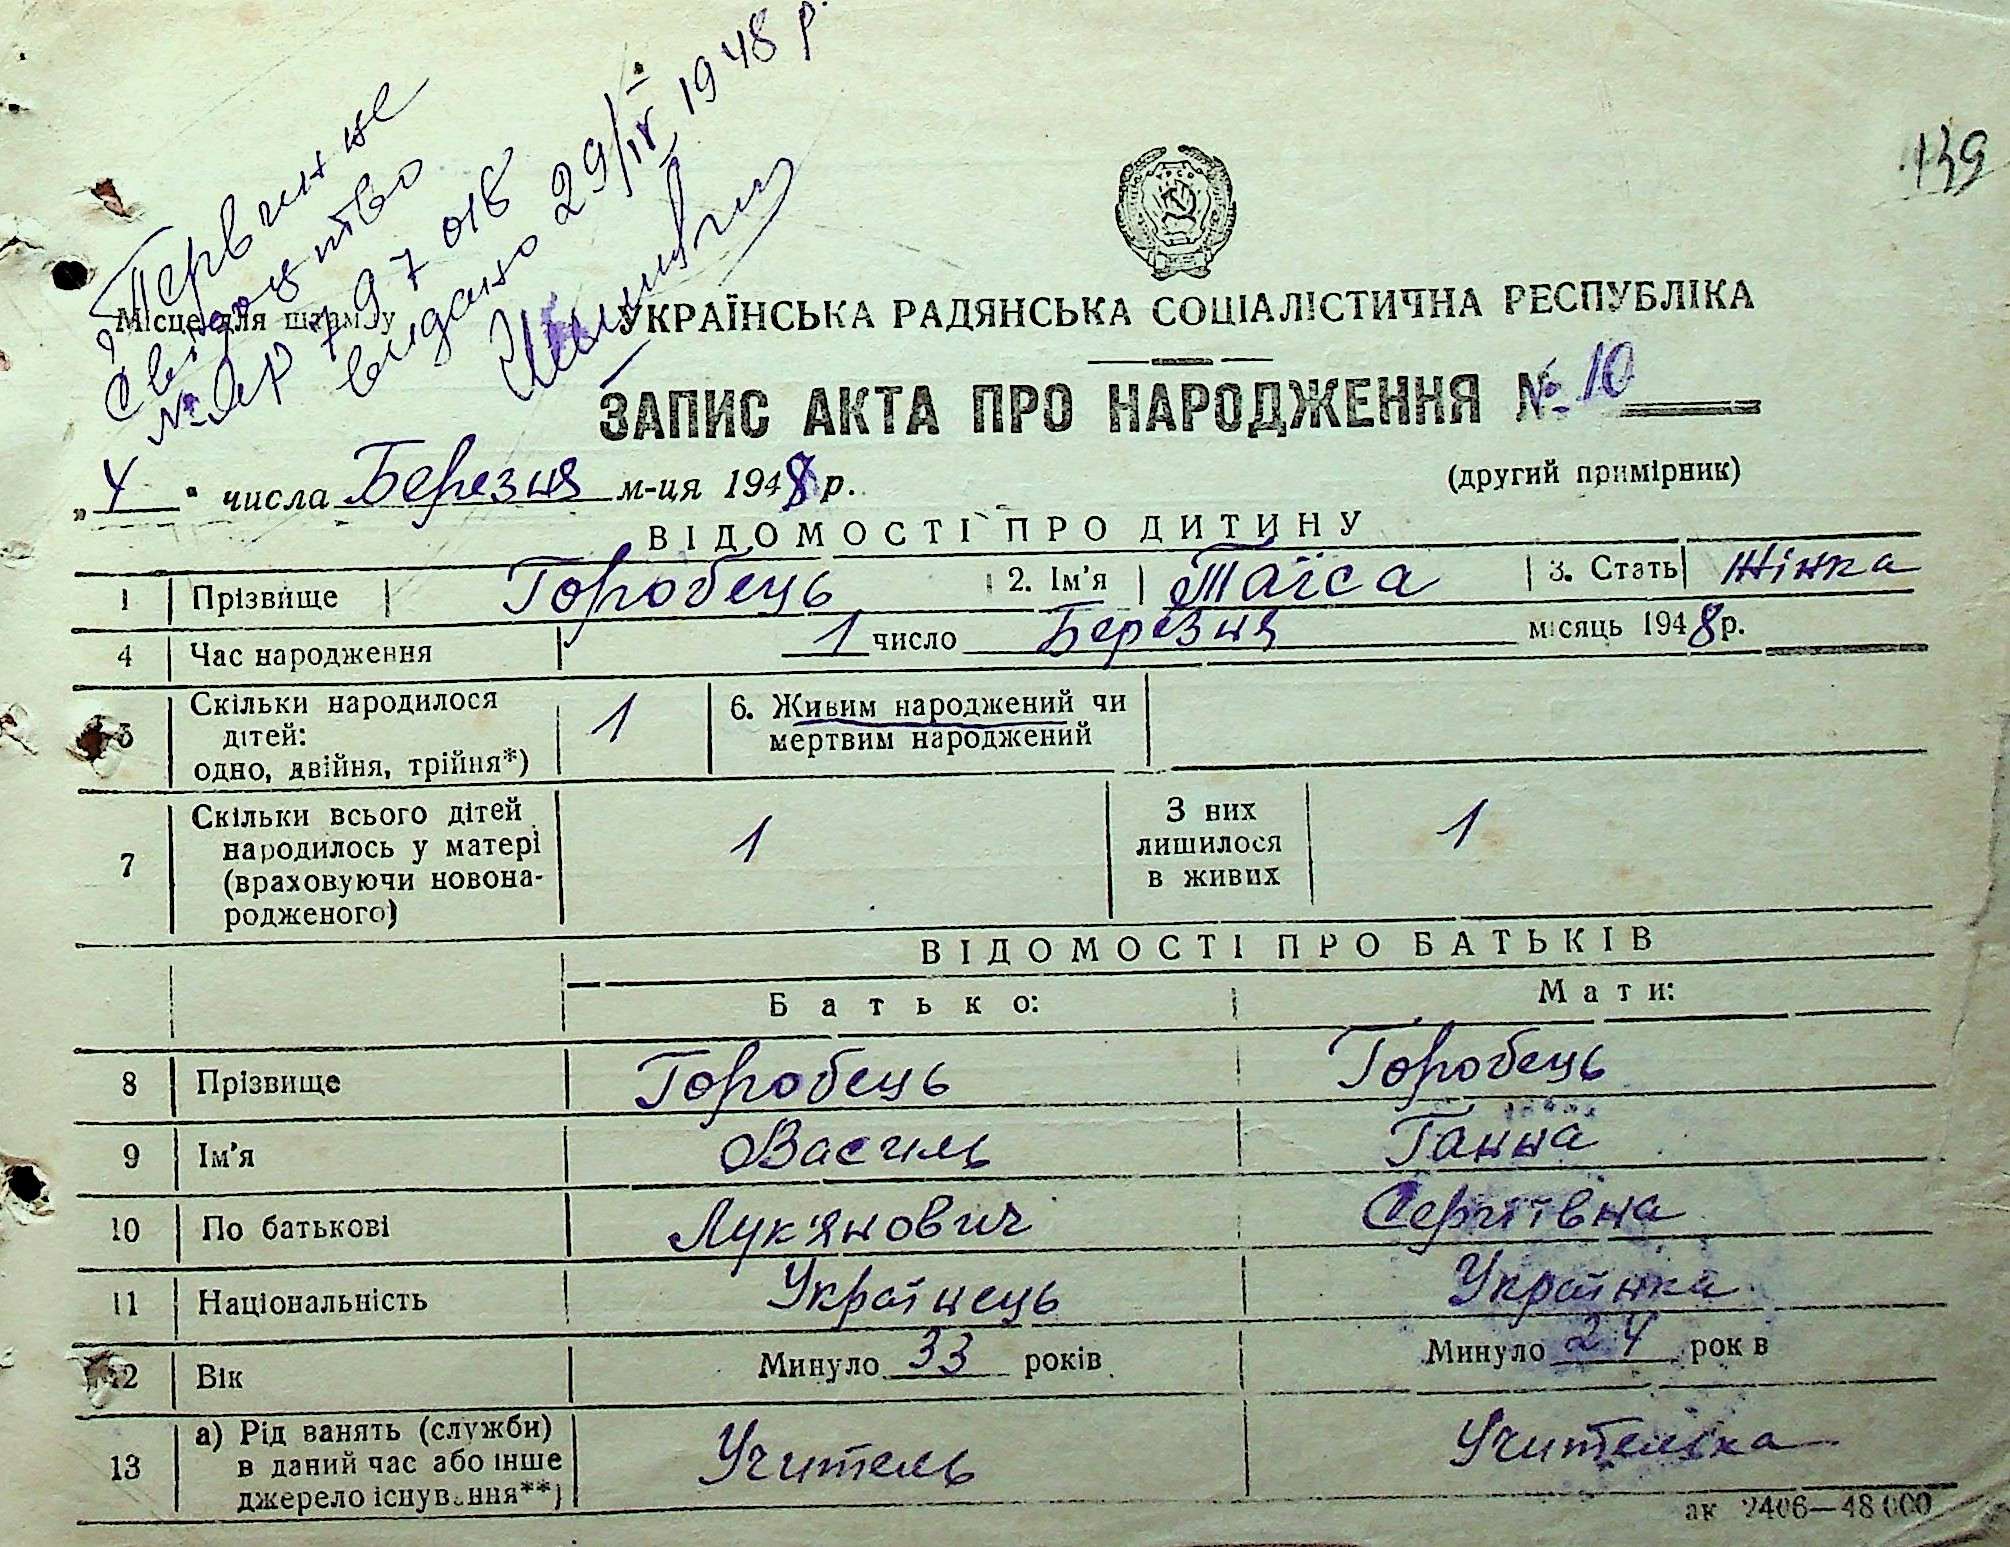 Первинне
свідоцтво
№ 797018
видано 29/IV 1948 р.
139
Місце для штампу
УКРАЇНСЬКА РАДЯНСЬКА СОЦІАЛІСТИЧНА РЕСПУБЛІКА
ЗАПИС АКТА ПРО НАРОДЖЕННЯ № 10
„4" числа Березня м-ця 1948 р.
(другий примірник)
ВІДОМОСТІ ПРО ДИТИНУ
1 Прізвище Горобець 2. Ім'я Таїса 3. Стать Жінка
4 Час народження 1 число Березня місяць 1948 р.
5 Скільки народилося дітей: одно, двійня, трійня*) 1 6. Живим народжений чи мертвим народжений
7 Скільки всього дітей народилось у матері (враховуючи новонародженого) 1 З них лишилося в живих 1
ВІДОМОСТІ ПРО БАТЬКІВ
Батько: Мати:
8 Прізвище Горобець Горобець
9 Ім'я Василь Ганна
10 По батькові Лук'янович Сергіївна
11 Національність Українець Українка
12 Вік Минуло 33 років Минуло 24 рок в
13 а) Рід занять (служби) в даний час або інше джерело існування**) Учитель Учителька
ак 2406—48 000